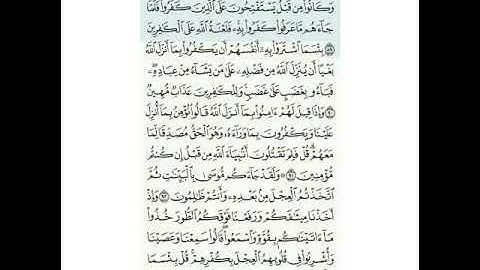 وَكَانُوا۟ مِن قَبْلُ يَسْتَفْتِحُونَ عَلَى ٱلَّذِينَ كَفَرُوا۟ فَلَمَّا
جَآءَهُم مَّا عَرَفُوا۟ كَفَرُوا۟ بِهِۦ فَلَعْنَةُ ٱللَّهِ عَلَى ٱلْكَٰفِرِينَ
بِئْسَمَا ٱشْتَرَوْا۟ بِهِۦٓ أَنفُسَهُمْ أَن يَكْفُرُوا۟ بِمَآ أَنزَلَ ٱللَّهُ
بَغْيًا أَن يُنَزِّلَ ٱللَّهُ مِن فَضْلِهِۦ عَلَىٰ مَن يَشَآءُ مِنْ عِبَادِهِۦ
فَبَآءُو بِغَضَبٍ عَلَىٰ غَضَبٍ وَلِلْكَٰفِرِينَ عَذَابٌ مُّهِينٌ
وَإِذَا قِيلَ لَهُمْ ءَامِنُوا۟ بِمَآ أَنزَلَ ٱللَّهُ قَالُوا۟ نُؤْمِنُ بِمَآ أُنزِلَ
عَلَيْنَا وَيَكْفُرُونَ بِمَا وَرَآءَهُۥ وَهُوَ ٱلْحَقُّ مُصَدِّقًا لِّمَا
مَعَهُمْ قُلْ فَلِمَ تَقْتُلُونَ أَنۢبِيَآءَ ٱللَّهِ مِن قَبْلُ إِن كُنتُم
مُّؤْمِنِينَ ۝ وَلَقَدْ جَآءَكُم مُّوسَىٰ بِٱلْبَيِّنَٰتِ ثُمَّ
ٱتَّخَذْتُمُ ٱلْعِجْلَ مِنۢ بَعْدِهِۦ وَأَنتُمْ ظَٰلِمُونَ ۝ وَإِذْ
أَخَذْنَا مِيثَٰقَكُمْ وَرَفَعْنَا فَوْقَكُمُ ٱلطُّورَ خُذُوا۟
مَآ ءَاتَيْنَٰكُم بِقُوَّةٍ وَٱسْمَعُوا۟ قَالُوا۟ سَمِعْنَا وَعَصَيْنَا
وَأُشْرِبُوا۟ فِى قُلُوبِهِمُ ٱلْعِجْلَ بِكُفْرِهِمْ قُلْ بِئْسَمَا